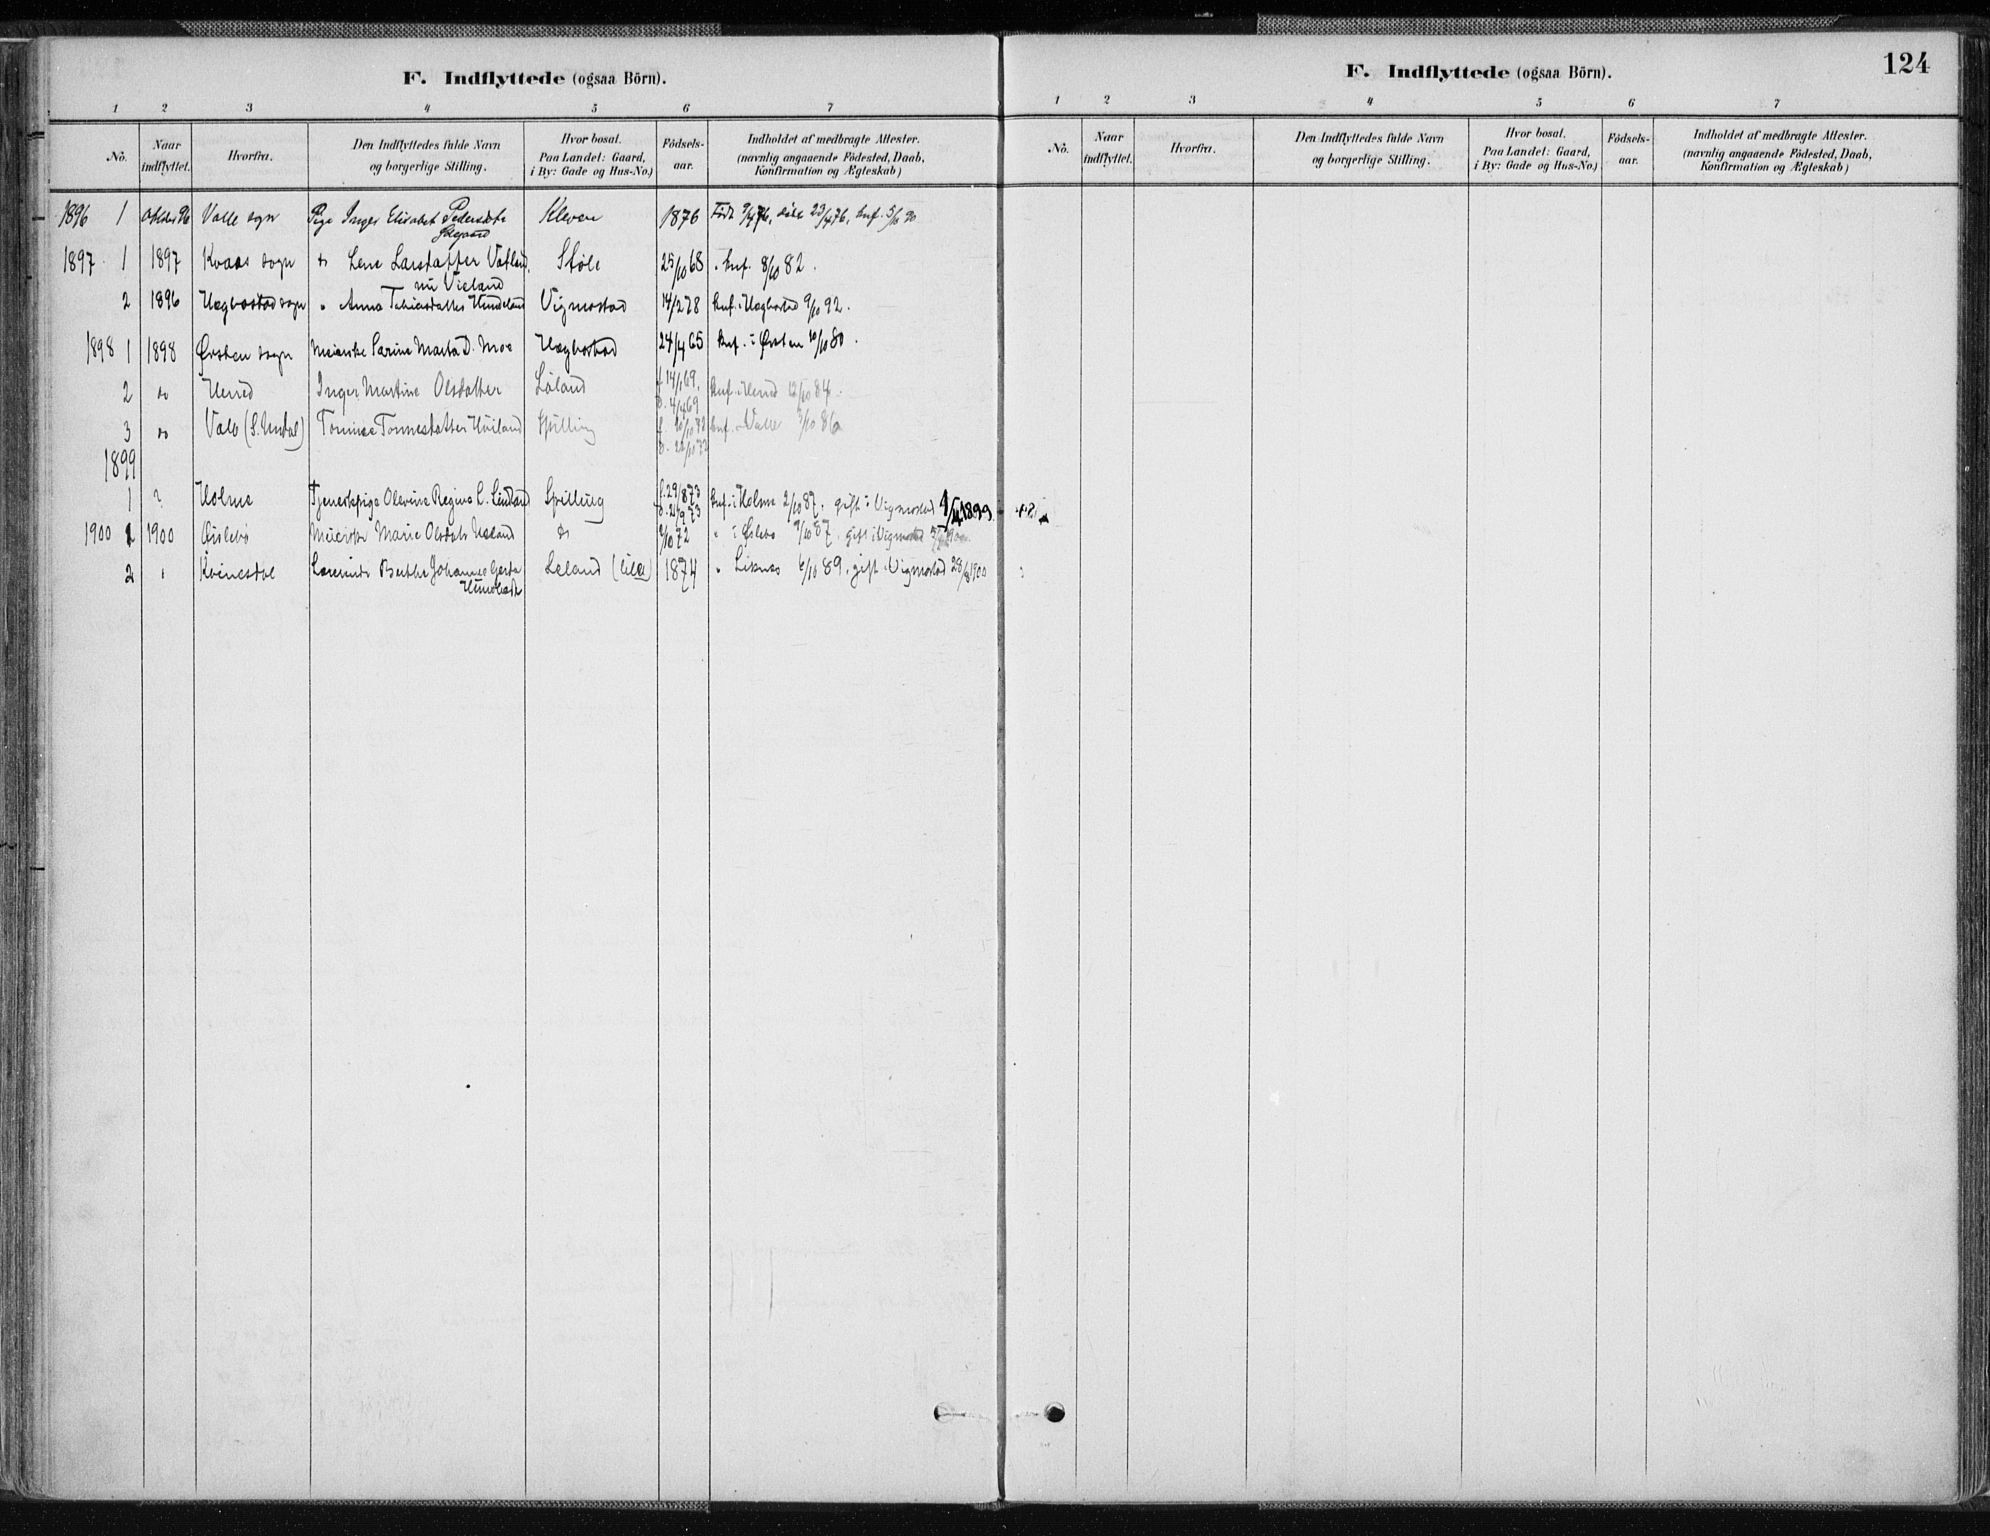 F. Indflyttede (ogsaa Börn).
1 2 3 4 5 6 7
No. Naar indflyttet. Hvorfra. Den Indflyttedes fulde Navn og borgerlige Stilling. Hvor bosat. Paa Landet: Gaard, i By: Gade og Hus-No.) Födsels-aar. Indholdet af medbragte Attester. (navnlig angaaende Födested, Daab, Konfirmation og Ægteskab)
1896 1 Oktbr 96 Valle sogn Pige Inger Elisabet Pedersdtr Kleven 1876 Født 9/4 76, døbt 23/4 76, konf. 5/10 90
1897 1 1897 Kvaas sogn do Lene Larsdatter Vatland Støle 25/10 68 konf. 8/10 82.
nu Vieland
2 1896 Hægbostad sogn " Anna Tobiasdatter Hundeland Vigmostad 14/2 78 konf. i Hægbostad 9/10 92.
1898 1 1898 Ørsten sogn Meierske Sarine Marta D. Moe Hægbostad 24/4 65 konf. i Ørsten 10/10 80.
2 do Herred Inger Martine Olsdatter Løland f. 14/1 69, konf. i Herred 12/10 84.
d. 4/4 69
3 do Valle (S. Undal) Tomine Tonnesdatter Høiland Spilling f. 20/10 72 konf. i Valle 3/10 86
1899
1 ? Holme Tjenestepige Olevine Regine C. Lindland Spilling f. 29/8 73 konf. i Holme 2/10 87. gift i Vigmostad 9/4 1899
d. 21/9 73
1900 1 1900 Øislebø Meierske Marie Olsdatr do 9/10 72 " i Øslebø 9/10 87. gift i Vigmostad
2 " Kvinesdal Lærerinde Berthe Johanne Gjerda Leland (lille) 1874 " Liknes 6/10 89, gift i Vigmostad 28/8 1900
F. Indflyttede (ogsaa Börn).
124
1 2 3 4 5 6 7
No. Naar indflyttet. Hvorfra. Den Indflyttedes fulde Navn og borgerlige Stilling. Hvor bosat. Paa Landet: Gaard, i By: Gade og Hus-No.) Födsels-aar. Indholdet af medbragte Attester. (navnlig angaaende Födested, Daab, Konfirmation og Ægteskab)